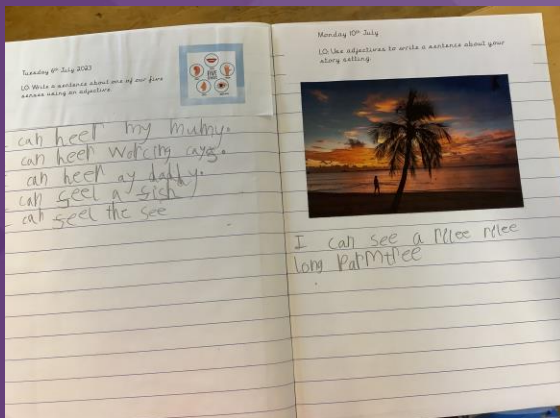 Tuesday 6th July 2023
LO: Write a sentence about one of our five
senses using an adjective.
can heer my mumy.
can heer
can heer ay daddy.
can seel a fish
can seel the see
Monday 10th July
LO: Use adjectives to write a sentence about your
story setting.
I can see a rilee rilee
long parmtree